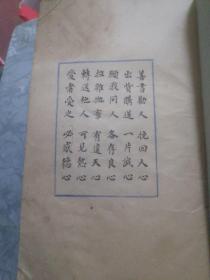 善書勸人　挽回人心
出資撰送　一片誠心
願我同人　各存良心
扭雜拋棄　有違天心
轉送他人　可見慈心
愛者受之　必感德心